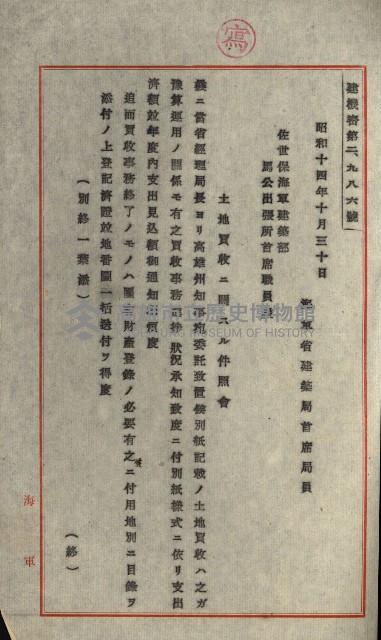 寫
建機密第二、九八六號
昭和十四年十月三十日
海軍省建築局首席局員
佐世保海軍建築部
馬公出張所首席職員殿
土地買收ニ關スル件照會
襲ニ當省經理局長ヨリ高雄州知事宛委託致置候別紙記載ノ土地買收ハ之ガ
豫算運用ノ關係モ有之買收事務ノ進捗狀況承知致度ニ付別紙樣式ニ依リ支出
濟額竝年度內支出見込額御通知相煩度
追而買收事務終了ノモノハ國有財產登錄ノ必要有之ニ付用地別ニ目錄ヲ
添付ノ上登記濟證竝地番圖一括送付ヲ得度
(別紙一葉添)
(終)
海軍
高雄市立歷史博物館
KAOHSIUNG MUSEUM OF HISTORY